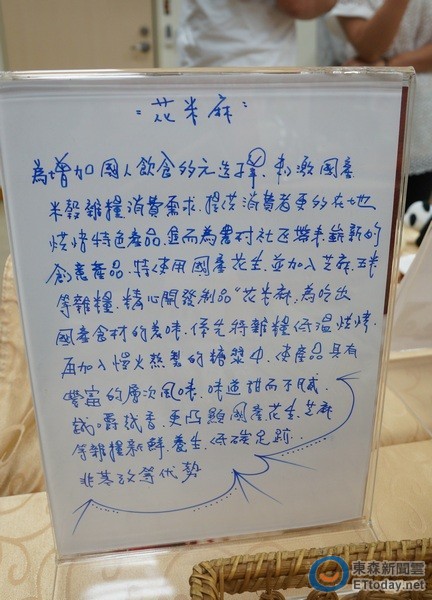 "花米麻"
為增加國人飲食的元造擇，刺激國產
米穀雜糧消費需求，提供消費者更多在地
烘烤特色產品，進而為農村社區帶來嶄新的
創意產品，特使用國產花生，並加入芝麻、玉米
等雜糧，精心開發制品"花米麻"，為吃出
國產食材的美味，係先將雜糧低溫烘烤，
再加入慢火熬製的糖漿中，使產品具有
豐富的層次風味，味道甜而不膩，
越嚼越香，更凸顯國產花生、芝麻
等雜糧新鮮、養生、低碳足跡、
非基改等優勢
東森新聞雲
ETtoday.net